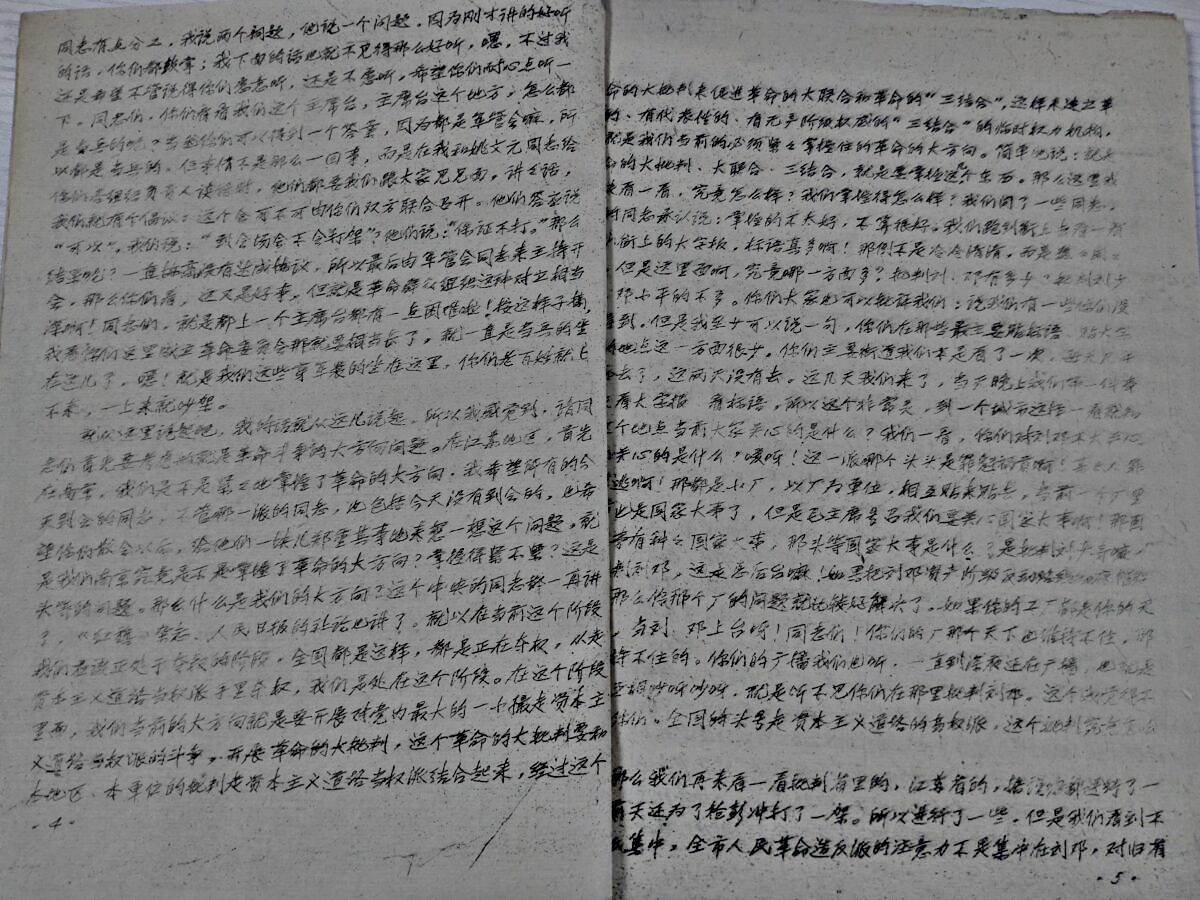 同志有点分工，我说两个问题，他说一个问题，因为刚才讲的好听
的话，你们都鼓掌；我下面的话也就不见得那么好听，嗯，不过我
还是希望不管说得你们愿意听，还是不愿听，希望你们耐心点听一
下。同志们，你们看看我们这个主席台，主席台这个地方，怎么都
是当兵的呢？当然你们可以得到一个答案，因为都是军管会嘛，所
以都是当兵的。但事情不是那么一回事，而是在我和姚文元同志给
你们各组织负责人谈话时，他们都要我们跟大家见见面，讲讲话，
我们就有个倡议：这个会可不可由你们双方联合召开。他们答应说
“可以”。我们说：“到会场会不会打架”？他们说：“保证不打。”那么
结果呢？一直搞离没有达成协议，所以最后由军管会同志来主持开
会，那么你们看，这又是好事，但就是革命群众组织这种对立相当
深啊！同志们，就是都上一个主席台都有一点困难啦！按这样子搞，
我看你们这里成立革命委员会那就要相当长了。就一直是当兵的坐
在这儿了，嗯！就是我们这些穿军装的坐在这里，你们老百姓就上
不来，一上来就吵架。
我从这里说起吧，我的话就从这儿说起，所以我感觉到，请同
志们首先要考虑的就是革命斗争的大方向问题。在江苏地区，首先
在南京，我们是不是紧紧地掌握了革命的大方向，我希望所有的今
天到会的同志，不管哪一派的同志，也包括今天没有到会的，也希
望你们散会以后，给他们一块儿郑重其事地来想一想这个问题。就
是我们南京究竟是不是掌握了革命的大方向？掌握得紧不紧？这是
头等的问题。那么什么是我们的大方向？这个中央的同志都一再讲
了，《红旗》杂志、人民日报的社论也讲了。就以在当前这个阶段
我们应该正处于夺权的阶段，全国都是这样，都是正在夺权，从走
资本主义道路当权派手里夺权，我们是处在这个阶段。在这个阶段
里面，我们当前的大方向就是要开展对党内最大的一小撮走资本主
义道路当权派的斗争。开展革命的大批判，这个革命的大批判要和
本地区、本单位的批判走资本主义道路当权派结合起来，经过这个
·4·
命的大批判来促进革命的大联合和革命的“三结合”，这样来建立革
的、有代表性的、有无产阶级权威的“三结合”的临时权力机构，
就是我们当前的必须紧紧掌握住的革命的大方向。简单地说：就是
的大批判、大联合、三结合，就是要掌握这个东西。那么这里我
来看一看，究竟怎么样？我们掌握得怎么样？我们问了一些同志，
同志承认说：掌握的不太好，不算很好。我们跑到街上去看一看
街上的大字报，标语真多啊！那倒不是冷冷清清，而是
但是这里面啊，究竟哪一方面多？批判刘、邓有多少？批判刘少
邓小平的不多。你们大家也可以批评我们：说我们有一些你们没
看到。但是我至少可以说一句，你们在那些最主要贴标语、贴大字
地点这一方面很少。你们主要街道我们本是看了一次，
去了，这两天没有去。这几天我们来了，当天晚上我们第一件事
看大字报，看标语，所以这个非常灵，到一个城市这样一看就知
个地点当前大家关心的是什么？我们一看，你们对刘邓不大关心
关心的是什么？嗳呀！这一派哪个头头是罪魁祸首啊！
啊！那都是小厂，以厂为单位，相互贴来贴去，当前一个厂里
也是国家大事了，但是毛主席号召我们要关心国家大事啊！那国
有种种国家大事，那头等国家大事是什么？是批判刘
刘邓，这是总后台嘛！如果把刘邓资产阶级反动路线
那么你那个厂的问题就比较好解决了。如果你的工厂都是你的天
，刘、邓上台啊！同志们！你们的厂那个天下也维持不住，
持不住的。你们的广播我们也听，一直到深夜还在广播，也就是
吵呀吵呀，就是听不见你们在那里批判刘邓。这个
你们。全国的头号走资本主义道路的当权派，这个批判究竟怎么
那么我们再来看一看批判省里的，江苏省的，
天还为了抢彭冲打了一架。所以进行了一些，但是我们看到不
集中。全市人民革命造反派的注意力不是集中在刘邓，对旧省
·5·